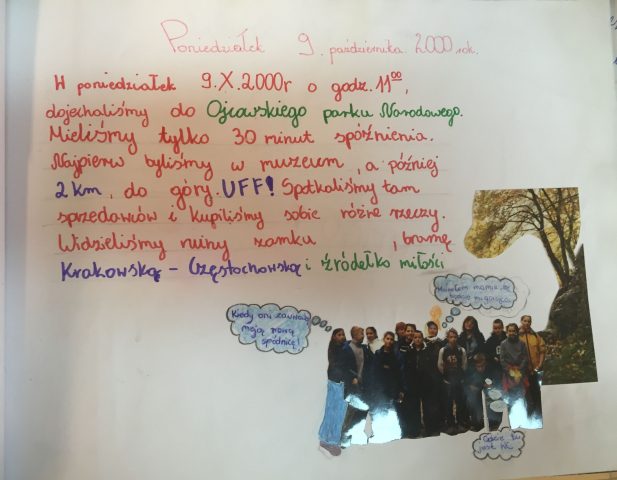 Poniedziałek 9. października. 2000 rok.
W poniedziałek 9.X.2000r o godz. 11⁰⁰,
dojechaliśmy do Ojcawskiego parku Narodowego.
Mieliśmy tylko 30 minut spóźnienia.
Najpierw byliśmy w muzeum, a później
2 km, do góry. UFF! Spotkaliśmy tam
sprzedawców i kupiliśmy sobie różne rzeczy.
Widzieliśmy ruiny zamku , bramę
Krakowską - Częstochowską i źródełko miłości
Kiedy oni zauważą
moją nową
spódnicę!
mamie, że
będzie
Gdzie tu
jest WC